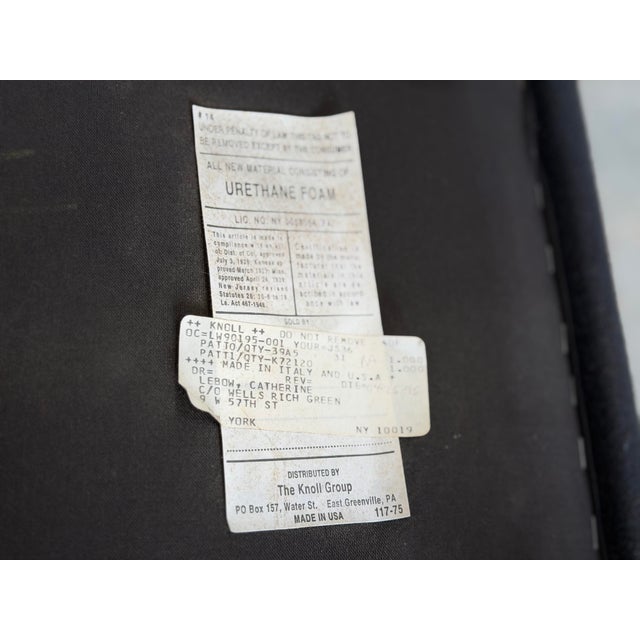 # 14
UNDER PENALTY OF LAW THIS TAG NOT TO
BE REMOVED EXCEPT BY THE CONSUMER
ALL NEW MATERIAL CONSISTING OF
URETHANE FOAM
LIC. NO. NY
This article is made in
compliance with an
Dist. of Col. approved
July 3, 1926; Kansas approved
March 1927; Minn.
approved April 24, 1929;
New Jersey revised
Statutes 26:10-6 to 18
La. Act 467-1948.
Certification is
made by the
manufacturer that the
materials in this
article are
described in accordance
with law
SOLD BY
++ KNOLL ++ DO NOT REMOVE
OC=LW90195-001 YOUR=J536
PATT0/QTY-39A5 31 1.000
PATT1/QTY-K72120 1.000
++++ MADE IN ITALY AND U.S.A
OR= REV=
LEBOW, CATHERINE
C/O WELLS RICH GREEN
9 W 57TH ST
YORK NY 10019
DISTRIBUTED BY
The Knoll Group
PO Box 157, Water St. East Greenville, PA
MADE IN USA 117-75